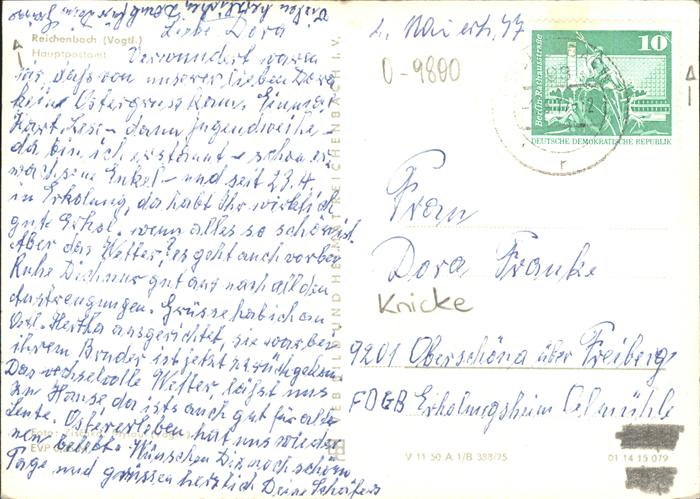 Vielen herzlichen Dank für deinen
Liebe Dora
Reichenbach (Vogtl.)
Hauptpostamt
Verwundert waren
wir, dass von unserer lieben Dora
keine Ostergruss kam. Nun
Kart. lese – dann Jugendweihe –
da bin ich erstaunt – schon er
wachsene Enkel – und seit 23.4.
in Erholung, da habt Ihr wirklich
gute Erhol. wenn alles so schön ist.
Aber das Wetter? es geht auch vorbei
Ruhe Dich nur gut aus nach all den
Anstrengungen. Grüsse hab ich an
Hertha ausgerichtet, sie war bei
ihrem Bruder ist jetzt zurückgekom
Das wechselvolle Wetter lässt uns
im Hause da ists auch gut für alte
Leute. Ostererleben hat uns wieder
neu belebt. Wünschen Dir noch schöne
Tage und grüssen herzlich Deine
EVP
VEB BILD UND HEIMAT REICHENBACH I. V.
2. Mai erh. 77
0-9800
10
Berlin-Rathausstraße
DEUTSCHE DEMOKRATISCHE REPUBLIK
Frau
Dora Franke
Knicke
9201 Oberschöna über Freiberg
FDGB Erholungsheim Oelmühle
V 11 50 A 1/B 388/75
01 14 15 079